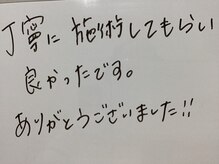 丁寧に施術してもらい
良かったです。
ありがとうございました!!